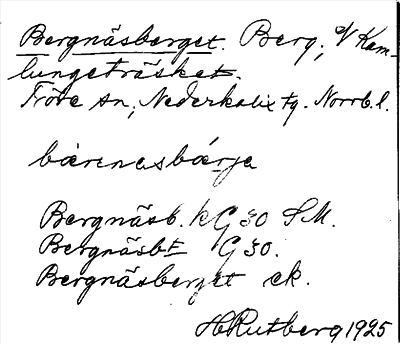 Bergnäsberget. Berg, v Kam-
lungeträsket.
Töre sn, Nederkalix tg. Norrb. l.
bärenasbärje
Bergnäsb. k G 30 SM.
Bergnäsbt G 30.
Bergnäsberget ek.
H Rutberg 1925